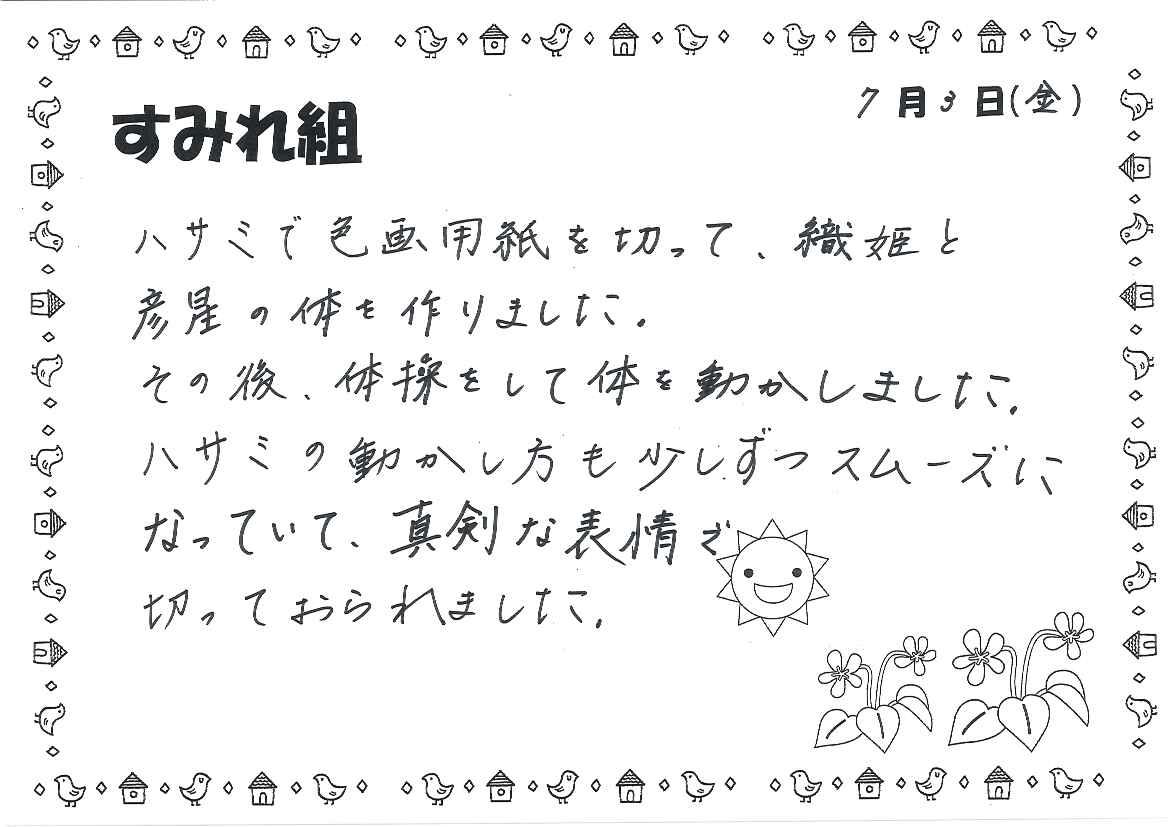 7月3日(金)
すみれ組
ハサミで色画用紙を切って、織姫と
彦星の体を作りました。
その後、体操をして体を動かしました。
ハサミの動かし方も少しずつスムーズに
なっていて、真剣な表情で
切っておられました。